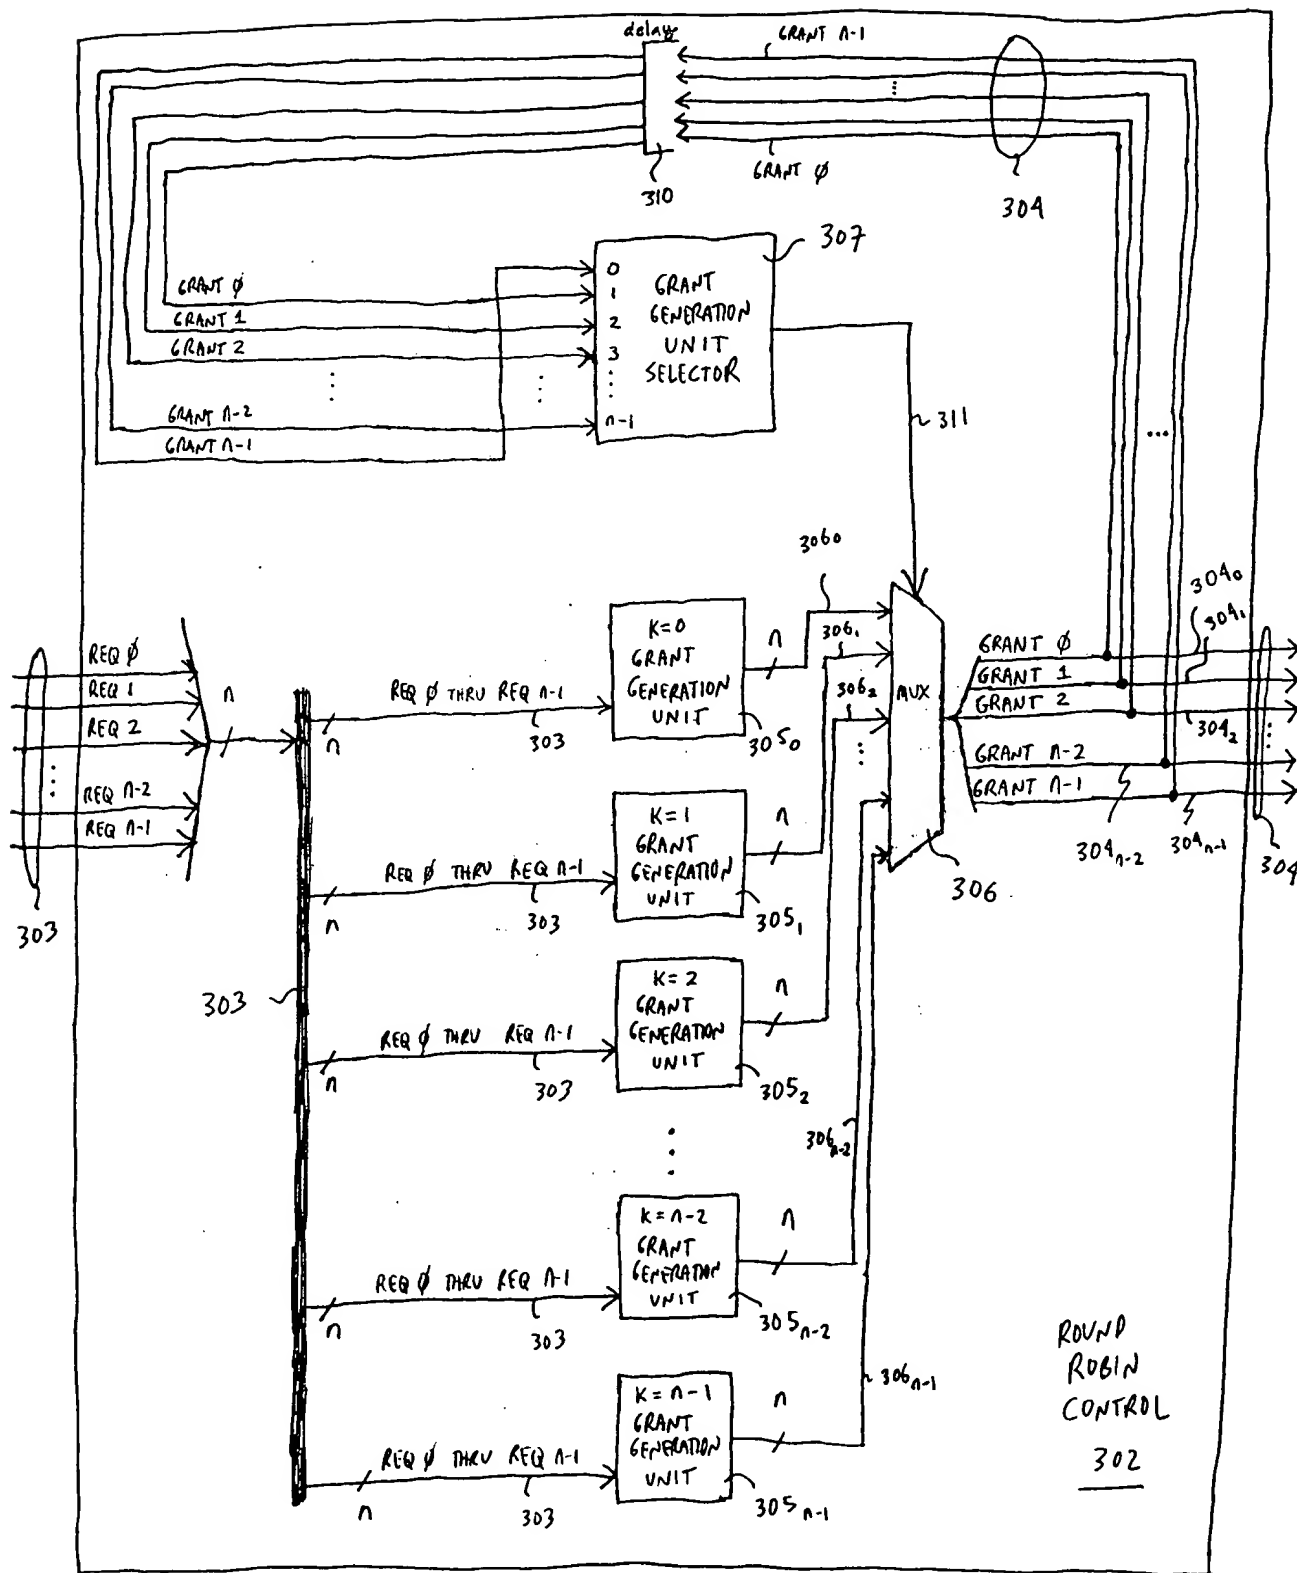 delay
GRANT n-1
...
GRANT ∅
310
304
307
GRANT ∅
GRANT 1
GRANT 2
GRANT n-2
GRANT n-1
0
1
2
3
n-1
GRANT
GENERATION
UNIT
SELECTOR
311
...
REQ ∅
REQ 1
REQ 2
REQ n-2
REQ n-1
303
n
303
REQ ∅ THRU REQ n-1
n
303
K=0
GRANT
GENERATION
UNIT
305₀
n
306₀
REQ ∅ THRU REQ n-1
n
303
K=1
GRANT
GENERATION
UNIT
305₁
n
306₁
REQ ∅ THRU REQ n-1
n
303
K=2
GRANT
GENERATION
UNIT
305₂
n
306₂
REQ ∅ THRU REQ n-1
n
303
K=n-2
GRANT
GENERATION
UNIT
305n-2
n
306n-2
REQ ∅ THRU REQ n-1
n
303
K=n-1
GRANT
GENERATION
UNIT
305n-1
n
306n-1
MUX
306
GRANT ∅
GRANT 1
GRANT 2
GRANT n-2
GRANT n-1
304₀
304₁
304₂
304n-2
304n-1
304
ROUND
ROBIN
CONTROL
302